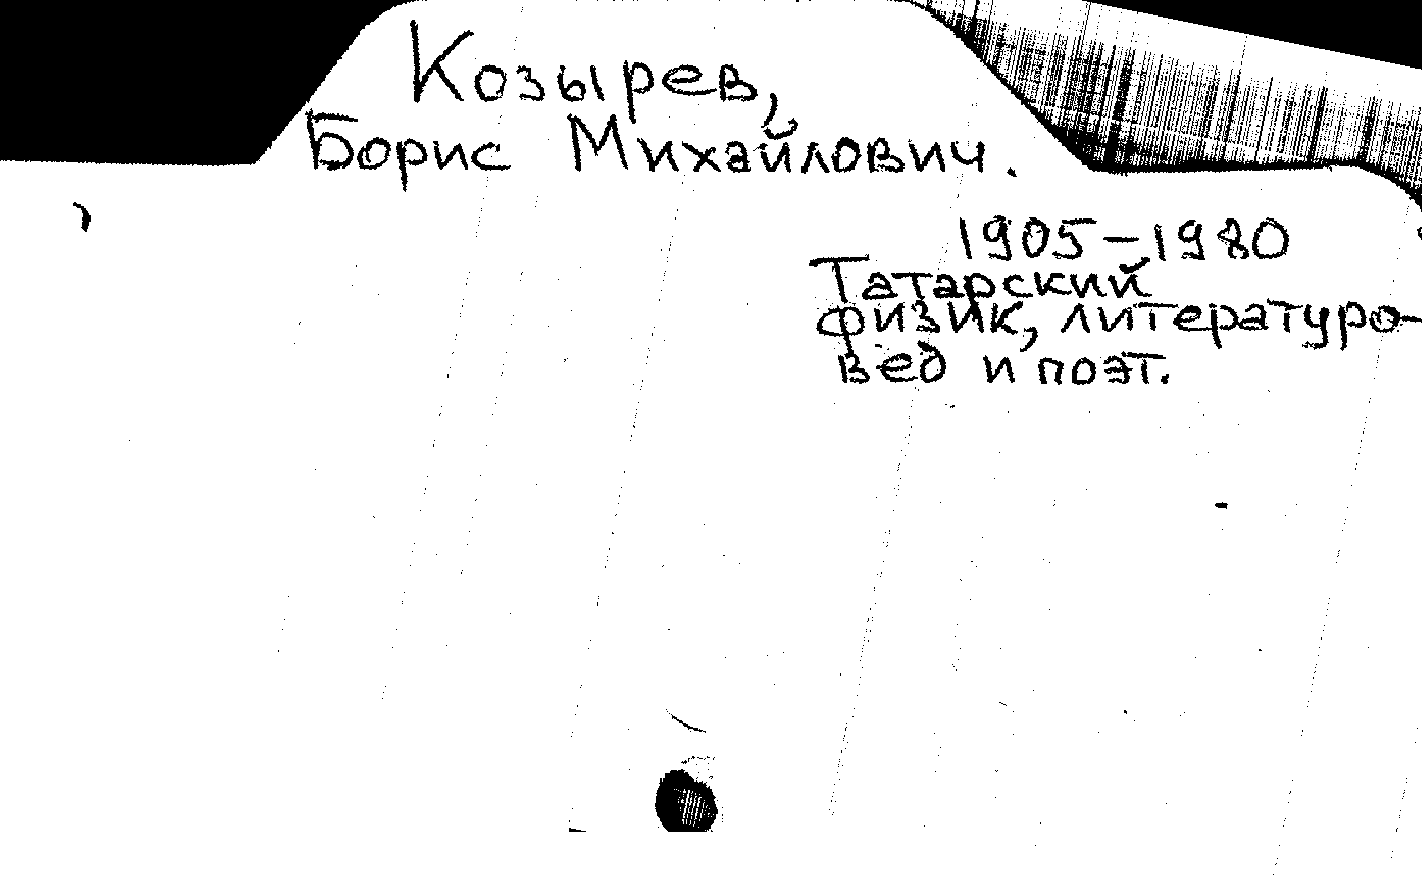 Козырев,
Борис Михайлович.
1905-1980
Татарский
физик, литературо-
вед и поэт.